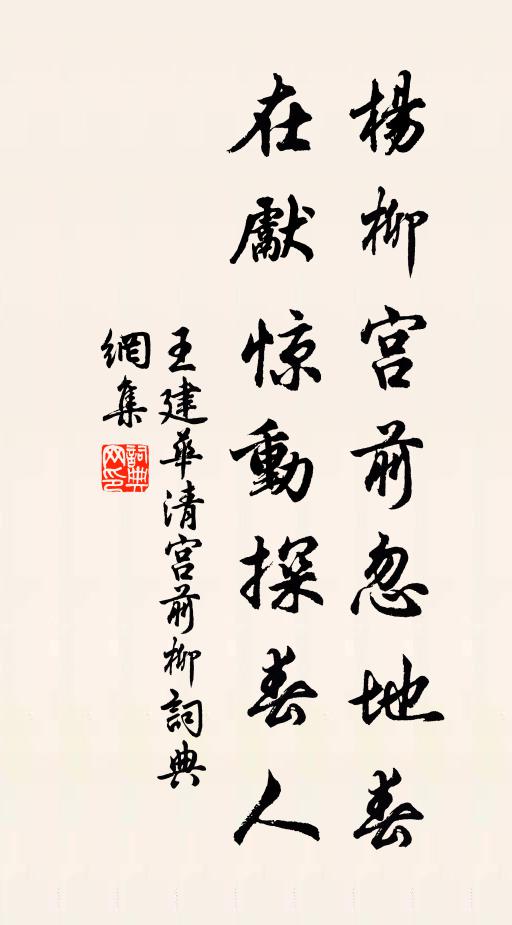 楊柳宫前忽地春
在獻惊動探春人
王建華清宫前柳詞典
網集
詞典網印